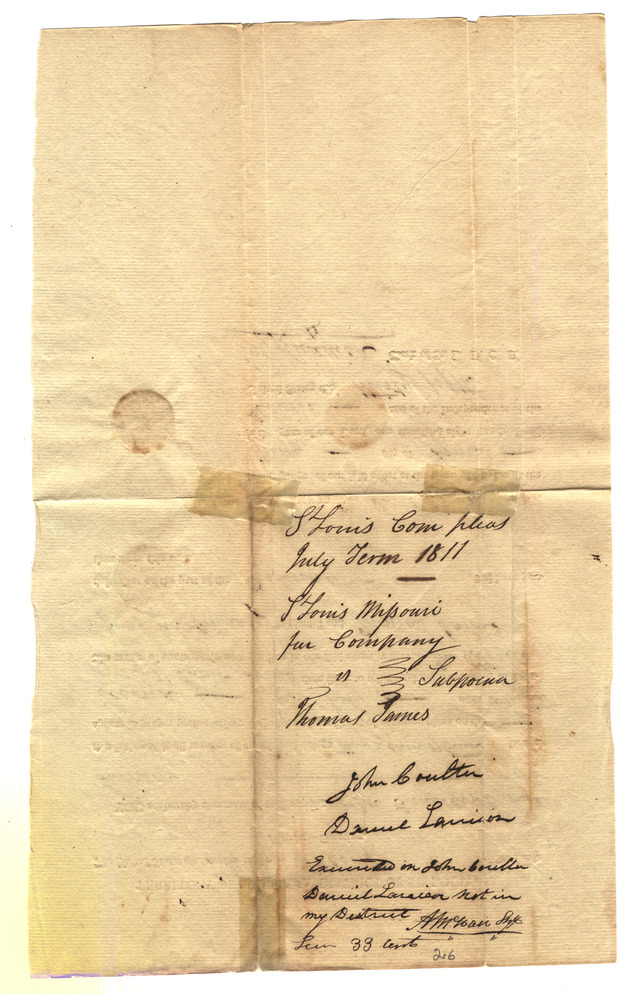 St Louis Com pleas
July Term 1811
St Louis Missouri
fur Company
vs Subpoena
Thomas James
John Coulter
Daniel Larrison
Executed on John Coulter
Daniel Larrison not in
my District
33 cents
26